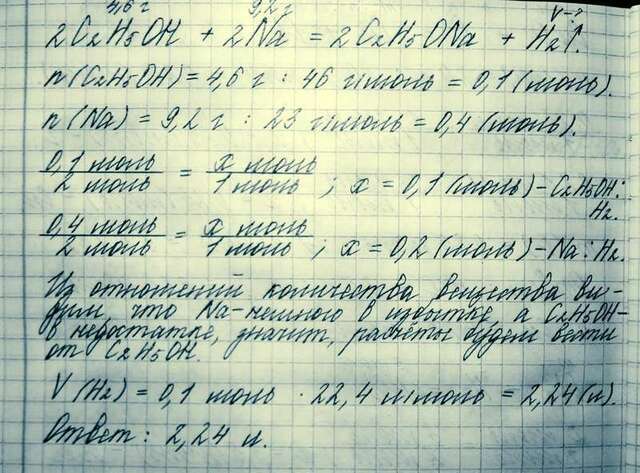 4,6 г 9,2 г V-?
2C2H5OH + 2Na = 2C2H5ONa + H2↑.
n(C2H5OH) = 4,6 г : 46 г/моль = 0,1 (моль).
n(Na) = 9,2 г : 23 г/моль = 0,4 (моль).
0,1 моль / 2 моль = x моль / 1 моль ; x = 0,1 (моль) - C2H5OH : H2.
0,4 моль / 2 моль = x моль / 1 моль ; x = 0,2 (моль) - Na : H2.
Из отношений количества вещества ви-
дим, что Na - немного в избытке, а C2H5OH -
в недостатке, значит, расчёты будем вести
от C2H5OH.
V(H2) = 0,1 моль · 22,4 л/моль = 2,24 (л).
Ответ: 2,24 л.